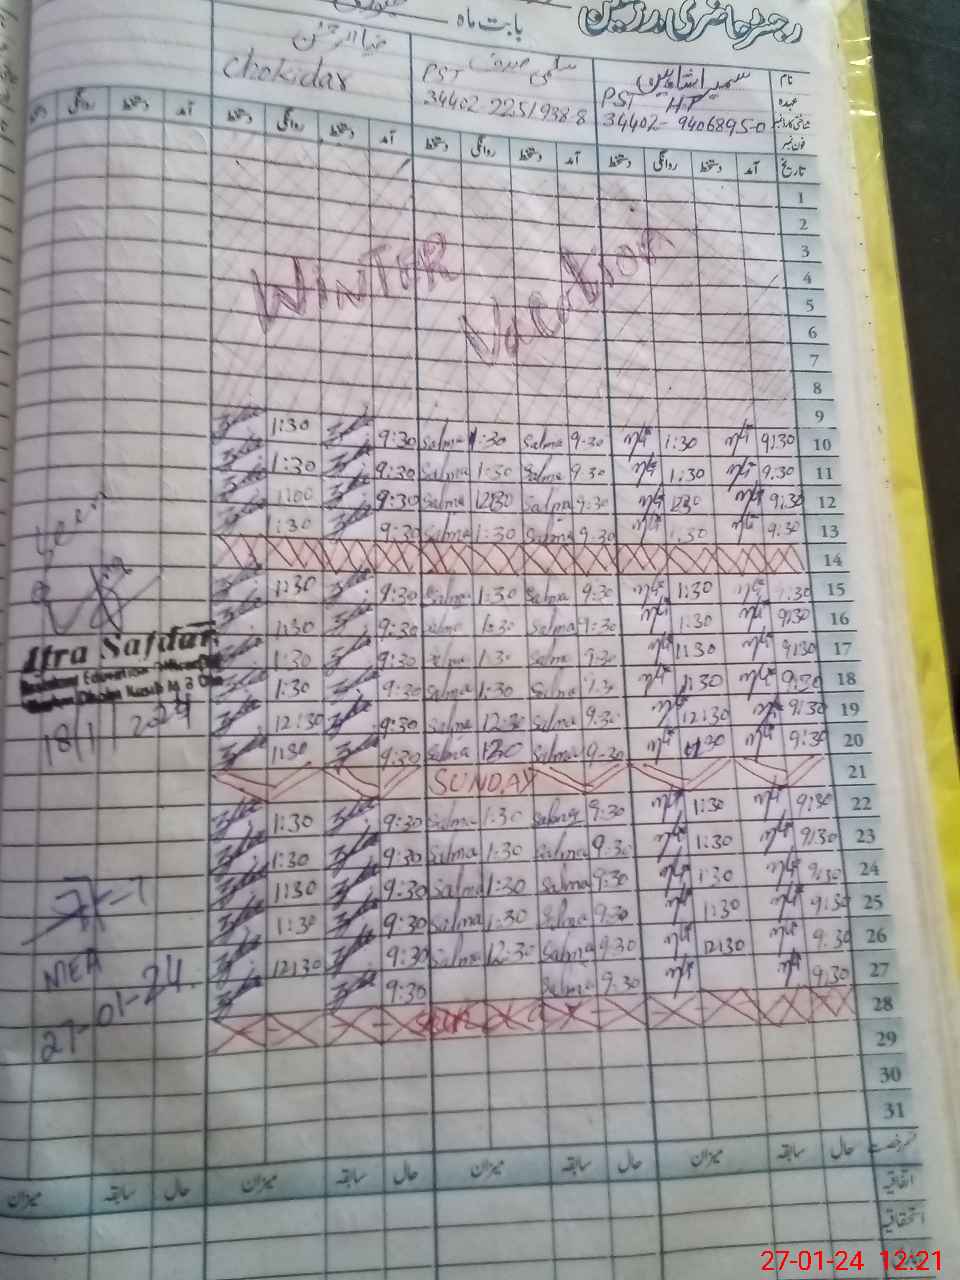 رجسٹر حاضری مدرسین
بابت ماہ
نام
عہدہ
شناختی کارڈ نمبر
فون نمبر
سمیرا شاہین
PST HT
34402-9406895-0
سلمیٰ
PST
34402-2251938-8
ضیاالرحمٰن
Chokidar
تاریخ آمد دستخط روانگی دستخط آمد دستخط روانگی دستخط آمد دستخط روانگی دستخط آمد دستخط روانگی
1
2
3
4
5
6
7
8
WINTER Vacation
9
1:30 9:30 Salma 1:30 Salma 9:30 1:30 9:30 10
1:30 9:30 Salma 1:30 Salma 9:30 1:30 9:30 11
1:00 9:30 Salma 12:30 Salma 9:30 12:30 9:30 12
1:30 9:30 Salma 1:30 Salma 9:30 1:30 9:30 13
14
1:30 9:30 Salma 1:30 Salma 9:30 1:30 9:30 15
1:30 9:30 Salma 1:30 Salma 9:30 1:30 9:30 16
1:30 9:30 Salma 1:30 Salma 9:30 1:30 9:30 17
1:30 9:30 Salma 1:30 Salma 9:30 1:30 9:30 18
12:30 9:30 Salma 12:30 Salma 9:30 12:30 9:30 19
1:30 9:30 Salma 1:30 Salma 9:30 1:30 9:30 20
SUNDAY 21
1:30 9:30 Salma 1:30 Salma 9:30 1:30 9:30 22
1:30 9:30 Salma 1:30 Salma 9:30 1:30 9:30 23
1:30 9:30 Salma 1:30 Salma 9:30 1:30 9:30 24
1:30 9:30 Salma 1:30 Salma 9:30 1:30 9:30 25
12:30 9:30 Salma 12:30 Salma 9:30 12:30 9:30 26
9:30 Salma 9:30 9:30 27
28
29
30
31
Seen
Ifra Safdar
18/1/2024
MEA
27-01-24
حال سابقہ میزان حال سابقہ میزان حال سابقہ میزان حال سابقہ میزان
اتفاقیہ
استحقاقیہ
27-01-24 12:21